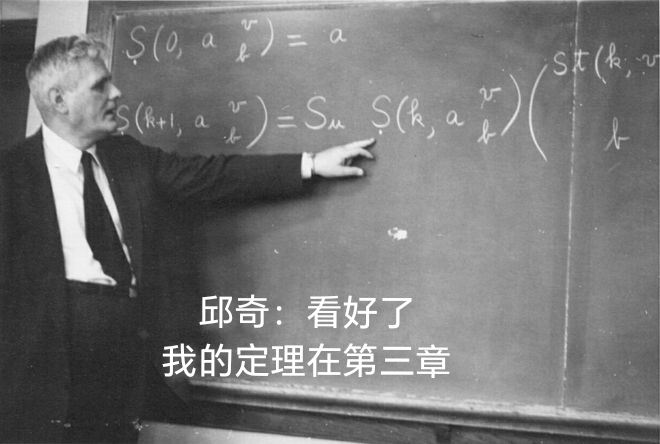 Ṣ(0, a v b) = a
Ṣ(k+1, a v b) = Sμ Ṣ(k, a v b)(St(k, v b
邱奇：看好了
我的定理在第三章